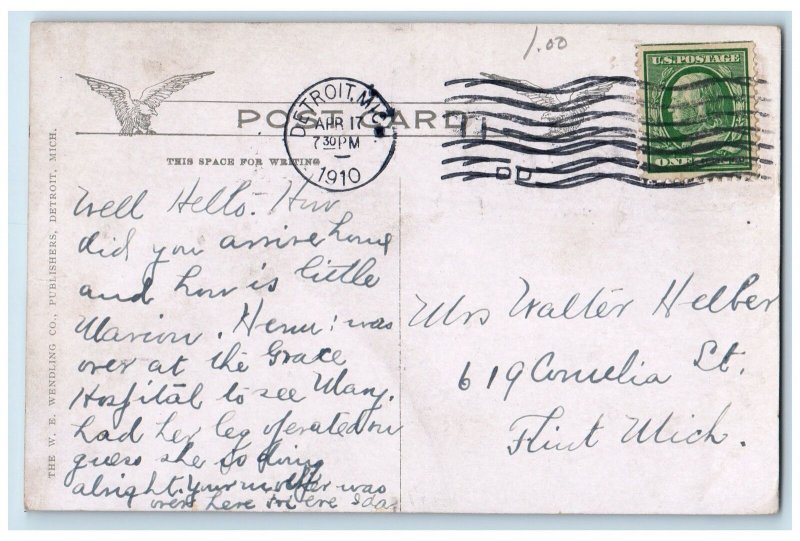 1.00
U.S. POSTAGE
ONE
DETROIT, MICH.
APR 17
7 30 PM
1910
POST CARD
THIS SPACE FOR WRITING
THE W. E. WENDLING CO., PUBLISHERS, DETROIT, MICH.
Well Hello. How
did you arrive home
and how is little
Marion. was
over at the Grace
Hospital to see Mary.
had her leg operated on
guess she so doing
alright. Your mother was
over here Ida
Mrs Walter Helber
619 Cornelia St.
Flint Mich.